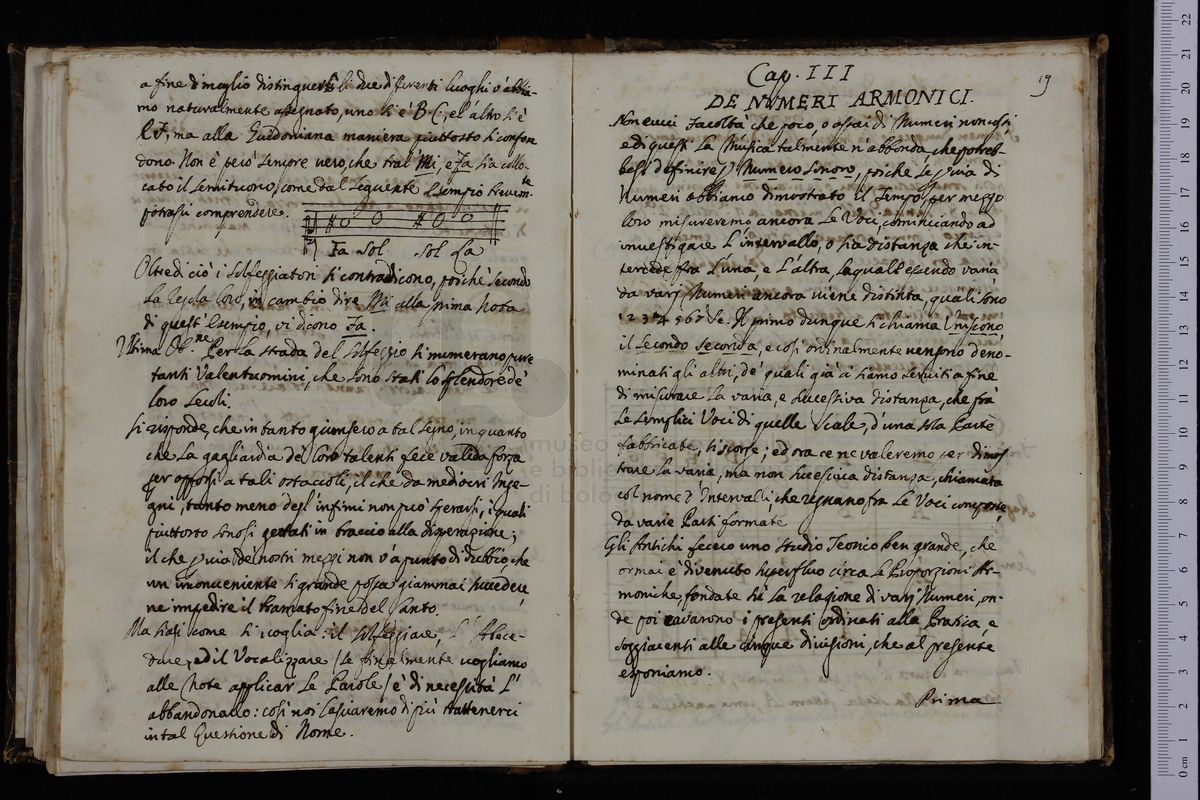 a fine di meglio distinguerli li due differenti luoghi v'abbia-
mo naturalmente assegnato, uno si è B C, e l'altro si è
E F, ma alla Guidoniana maniera piuttosto si confon
dono. Non è besì sempre vero, che tral Mi, e Fa sia collo-
cato il semituono, come dal seguente Esempio brevemte
potrassi comprendere.
Fa Sol Sol La
Oltre di ciò i Solfeggiatori si contradicono, poiché secondo
la Regola loro, in cambio dire Mi alla prima Nota
di questi Esempio, vi dicono Fa.
Ultima Ob.ne Per la strada del Solfeggio si numerano pure
tanti Valentuomini, che sono stati lo splendore de'
loro secoli.
Si risponde, che in tanto giunsero a tal segno, in quanto
che la gagliardia de' loro talenti fece valida forza
per opporsi a tali ostaccoli, il che da mediocri Inge-
gni, tanto meno degl' infimi non può sperarsi, i quali
piuttosto sonosi gettati in braccio alla disperazione;
il che p via de nostri mezzi non v'à punto di dubbio che
un inconveniente si grande possa giammai succedere,
ne impedire il bramato fine del Canto.
Ma siasi come si voglia: il Solfeggiare,
dare, ed il Vocalizzare / se finalmente vogliamo
alle Note applicar le Parole / è di necessità l'
abbandonarlo: così noi lasciaremo di più trattenerci
in tal Questione di Nome.
19
Cap. III
DE NUMERI ARMONICI.
Non evvi Facoltà che poco, o assai di Numeri non usi
e di questi la Musica talmente n'abbonda, che potreb-
besi definire p Numero sonoro, poiché se p via di
Numeri abbiamo dimostrato il Tempo, per mezzo
loro misureremo ancora le Voci, cominciando ad
investigare l'intervallo, o sia distanza che in-
tercede fra l'una, e l'altra, la quale essendo varia
da varj Numeri ancora viene distinta, quali sono
1 2 3 4 5 6 7 8c. Il primo dunque si chiama Unisono,
il secondo Seconda, e così ordinalmente vengono deno-
minati gli altri, de' quali già ci siamo serviti a fine
di misurare la varia, e successiva distanza, che frà
le semplici Voci di quelle Scale, d'una sola Parte
fabbricate, si scorse; ed ora ce ne valeremo per dimos
trare la varia, ma non successiva distanza, chiamata
col nome d'Intervalli, che regnano fra le Voci composte,
da varie Parti formate
Gli Antichi fecero uno studio Teorico ben grande, che
ormai è divenuto superfluo circa le Proporzioni Ar-
moniche fondate sù la relazione di varj Numeri, on-
de poi cavarono i presenti ordinati alla Pratica, e
soggiacenti alle cinque divisioni, che al presente
esponiamo.
Prima
museo
e biblio
di bolo